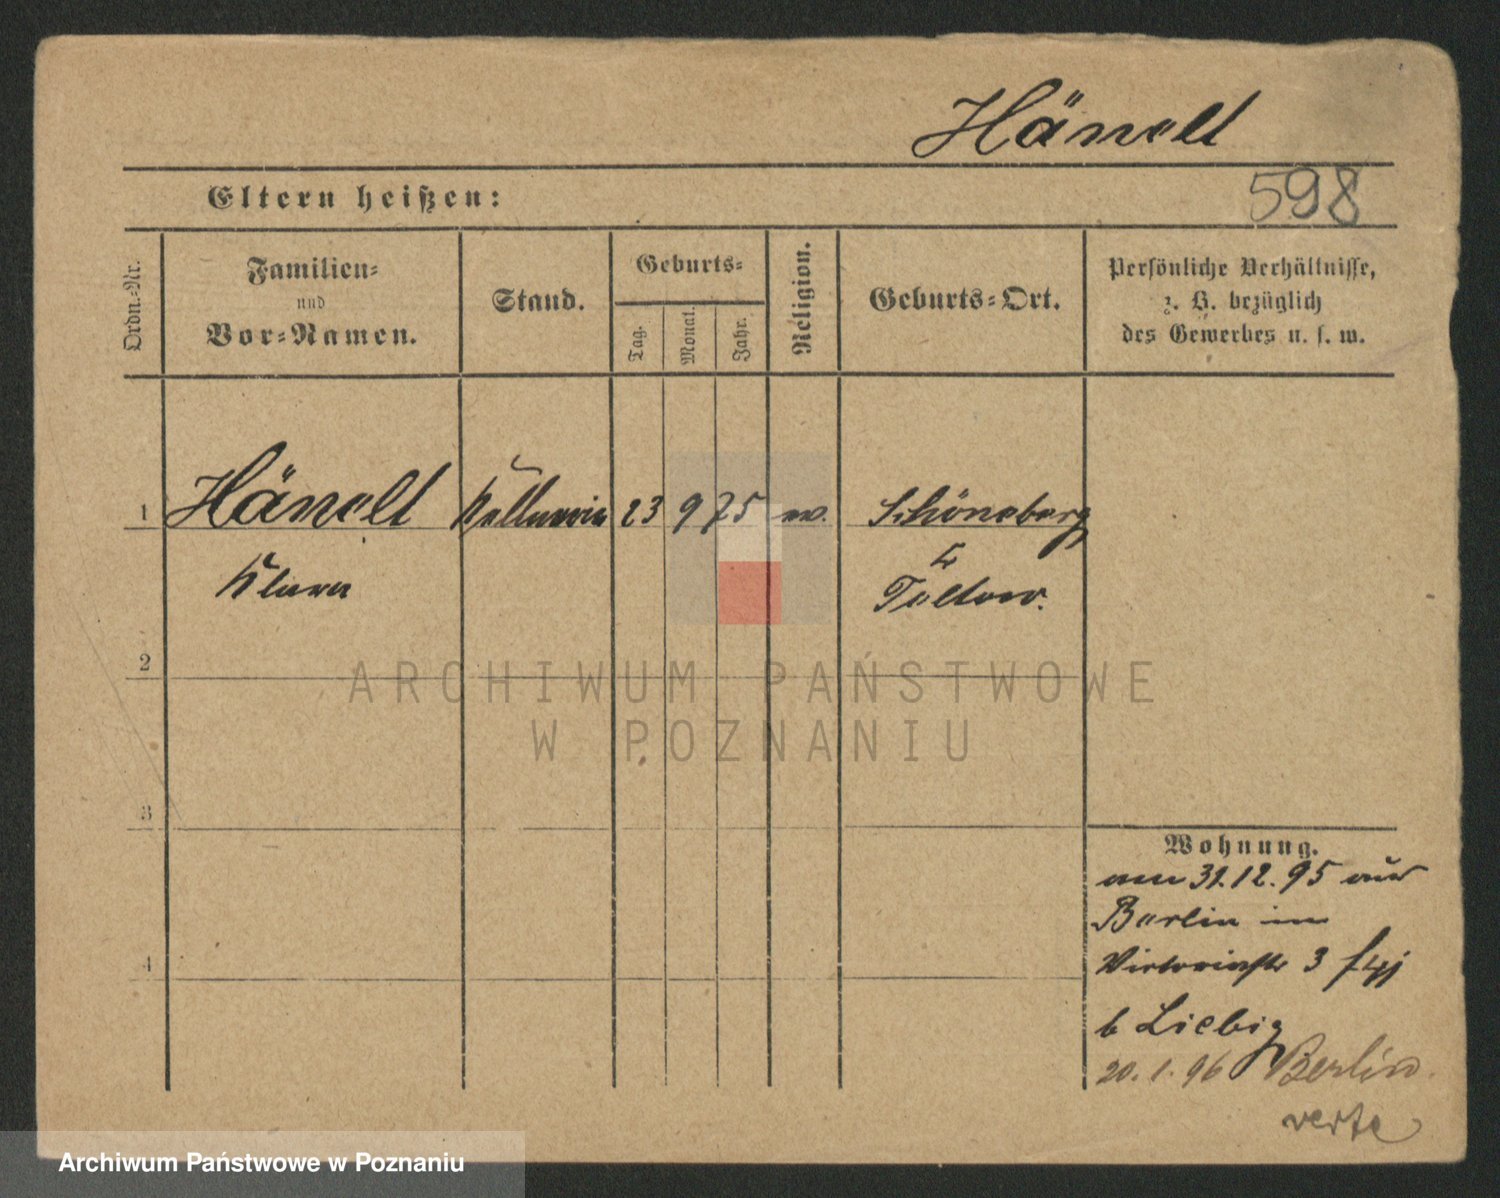 Hänelt
598
Eltern heißen:
Ordn.=Nr.
Familien=
und
Vor=Namen.
Stand.
Geburts=
Tag.
Monat.
Jahr.
Religion.
Geburts=Ort.
Persönliche Verhältnisse,
z. B. bezüglich
des Gewerbes u. s. w.
1 Hänelt Kellnerin 23 9 75 ev. Schöneberg
Klara
Teltow.
2
ARCHIWUM PAŃSTWOWE
W POZNANIU
3
Wohnung.
am 31.12.95 aus
Berlin in
Victoriastr 3
4
b Liebig
20.1.96 Berlin
verte
Archiwum Państwowe w Poznaniu